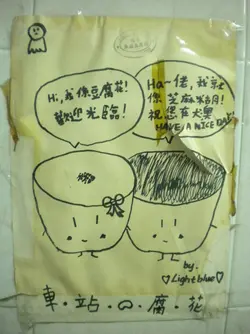 Hi, 我係豆腐花!
歡迎光臨!
Ha~佬, 我就
係芝麻糊!
祝您有
HAVE A NICE DAY
by.
♡Lightblue♡
車・站・の・腐・花